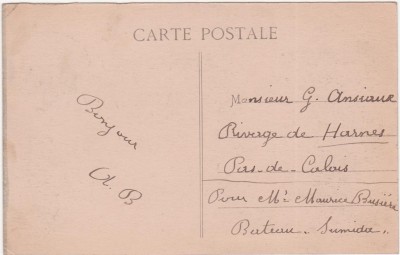 CARTE POSTALE
Bonjour
A. B
Monsieur G. Ansiaux
Rivage de Harnes
Pas-de-Calais
Pour Mr Maurice Busière
Bateau. Sumida.